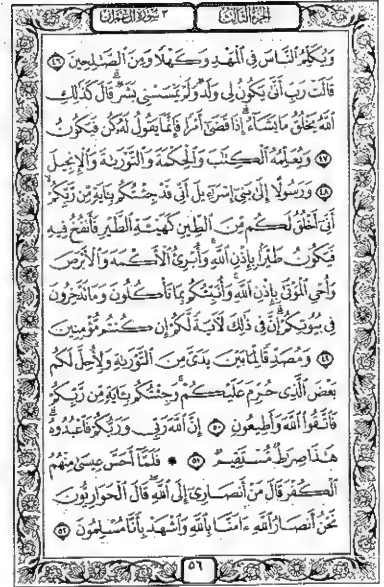 الجزء الثالث
٣ سورة آل عمران
وَيُكَلِّمُ النَّاسَ فِي الْمَهْدِ وَكَهْلًا وَمِنَ الصَّٰلِحِينَ ٤٦
قَالَتْ رَبِّ أَنَّىٰ يَكُونُ لِي وَلَدٌ وَلَمْ يَمْسَسْنِي بَشَرٌ قَالَ كَذَٰلِكِ
اللَّهُ يَخْلُقُ مَا يَشَاءُ إِذَا قَضَىٰ أَمْرًا فَإِنَّمَا يَقُولُ لَهُ كُن فَيَكُونُ
٤٧ وَيُعَلِّمُهُ الْكِتَٰبَ وَالْحِكْمَةَ وَالتَّوْرَىٰةَ وَالْإِنجِيلَ
٤٨ وَرَسُولًا إِلَىٰ بَنِي إِسْرَٰءِيلَ أَنِّي قَدْ جِئْتُكُم بِـَٔايَةٍ مِّن رَّبِّكُمْ
أَنِّي أَخْلُقُ لَكُم مِّنَ الطِّينِ كَهَيْـَٔةِ الطَّيْرِ فَأَنفُخُ فِيهِ
فَيَكُونُ طَيْرًا بِإِذْنِ اللَّهِ وَأُبْرِئُ الْأَكْمَهَ وَالْأَبْرَصَ
وَأُحْيِ الْمَوْتَىٰ بِإِذْنِ اللَّهِ وَأُنَبِّئُكُم بِمَا تَأْكُلُونَ وَمَا تَدَّخِرُونَ
فِي بُيُوتِكُمْ إِنَّ فِي ذَٰلِكَ لَـَٔايَةً لَّكُمْ إِن كُنتُم مُّؤْمِنِينَ
٤٩ وَمُصَدِّقًا لِّمَا بَيْنَ يَدَيَّ مِنَ التَّوْرَىٰةِ وَلِأُحِلَّ لَكُم
بَعْضَ الَّذِي حُرِّمَ عَلَيْكُمْ وَجِئْتُكُم بِـَٔايَةٍ مِّن رَّبِّكُمْ
فَاتَّقُوا اللَّهَ وَأَطِيعُونِ ٥٠ إِنَّ اللَّهَ رَبِّي وَرَبُّكُمْ فَاعْبُدُوهُ
هَٰذَا صِرَٰطٌ مُّسْتَقِيمٌ ٥١ * فَلَمَّا أَحَسَّ عِيسَىٰ مِنْهُمُ
الْكُفْرَ قَالَ مَنْ أَنصَارِي إِلَى اللَّهِ قَالَ الْحَوَارِيُّونَ
نَحْنُ أَنصَارُ اللَّهِ ءَامَنَّا بِاللَّهِ وَاشْهَدْ بِأَنَّا مُسْلِمُونَ ٥٢
٥٦